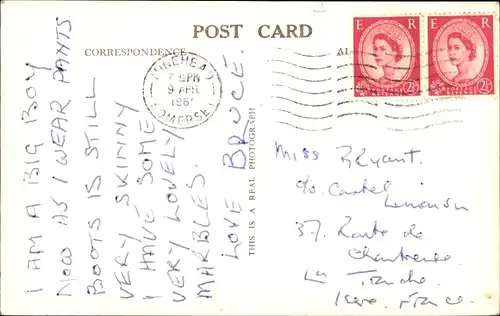 POST CARD
CORRESPONDENCE
MINEHEAD
7 PM
9 APR
196
SOMERSET
E R
POSTAGE REVENUE
2½
E R
POSTAGE REVENUE
2½
I AM A BIG BOY
NOW AS I WEAR PANTS
BOOTS IS STILL
VERY SKINNY
I HAVE SOME
VERY LOVELY
MARBLES.
LOVE BRUCE.
THIS IS A REAL PHOTOGRAPH
Miss Bryant.
c/o Castel
37. Route de
Chartreuse
La Tronche
Isère. France.